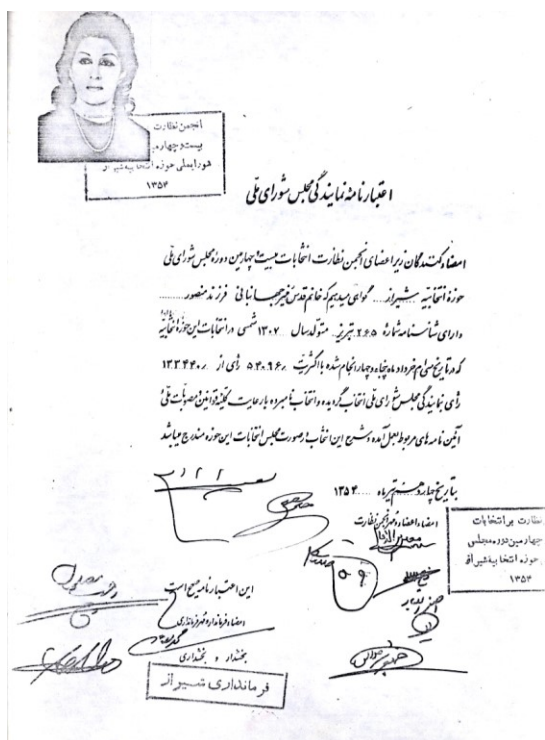 انجمن نظارت
بیست و چهارم
شورایملی حوزه انتخابیه شیراز
۱۳۵۴
اعتبارنامه نمایندگی مجلس شورای ملی
امضاءکنندگان زیر اعضای انجمن نظارت انتخابات بیست و چهارمین دوره مجلس شورای ملی
حوزه انتخابیه شیراز گواهی میدهیم که خانم قدس نیر جهانبانی فرزند منصور
دارای شناسنامه شماره ۲۶۵ تبریز متولد سال ۱۳۰۷ شمسی در انتخابات این حوزه انتخابیه
که در تاریخ سی ام خرداد ماه پنجاه و چهار انجام شده با اکثریت ۵۴۰۹۶ رأی از ۱۳۳۴۴۰
رأی نمایندگی مجلس شورای ملی انتخاب گردیده و انتخاب نامبرده با رعایت کلیه قوانین و مصوبات ملی و
آئین نامه های مربوط بعمل آمده و شرح این انتخاب در صورت مجلس انتخابات این حوزه مندرج میباشد
بتاریخ چهاردهم تیرماه ۱۳۵۴
امضاء اعضاء و مهر انجمن نظارت
نظارت بر انتخابات
چهارمین دوره مجلس
حوزه انتخابیه شیراز
۱۳۵۴
این اعتبارنامه صحیح است
امضاء فرماندار و مهر فرمانداری
بخشدار و بخشداری
فرمانداری شیراز